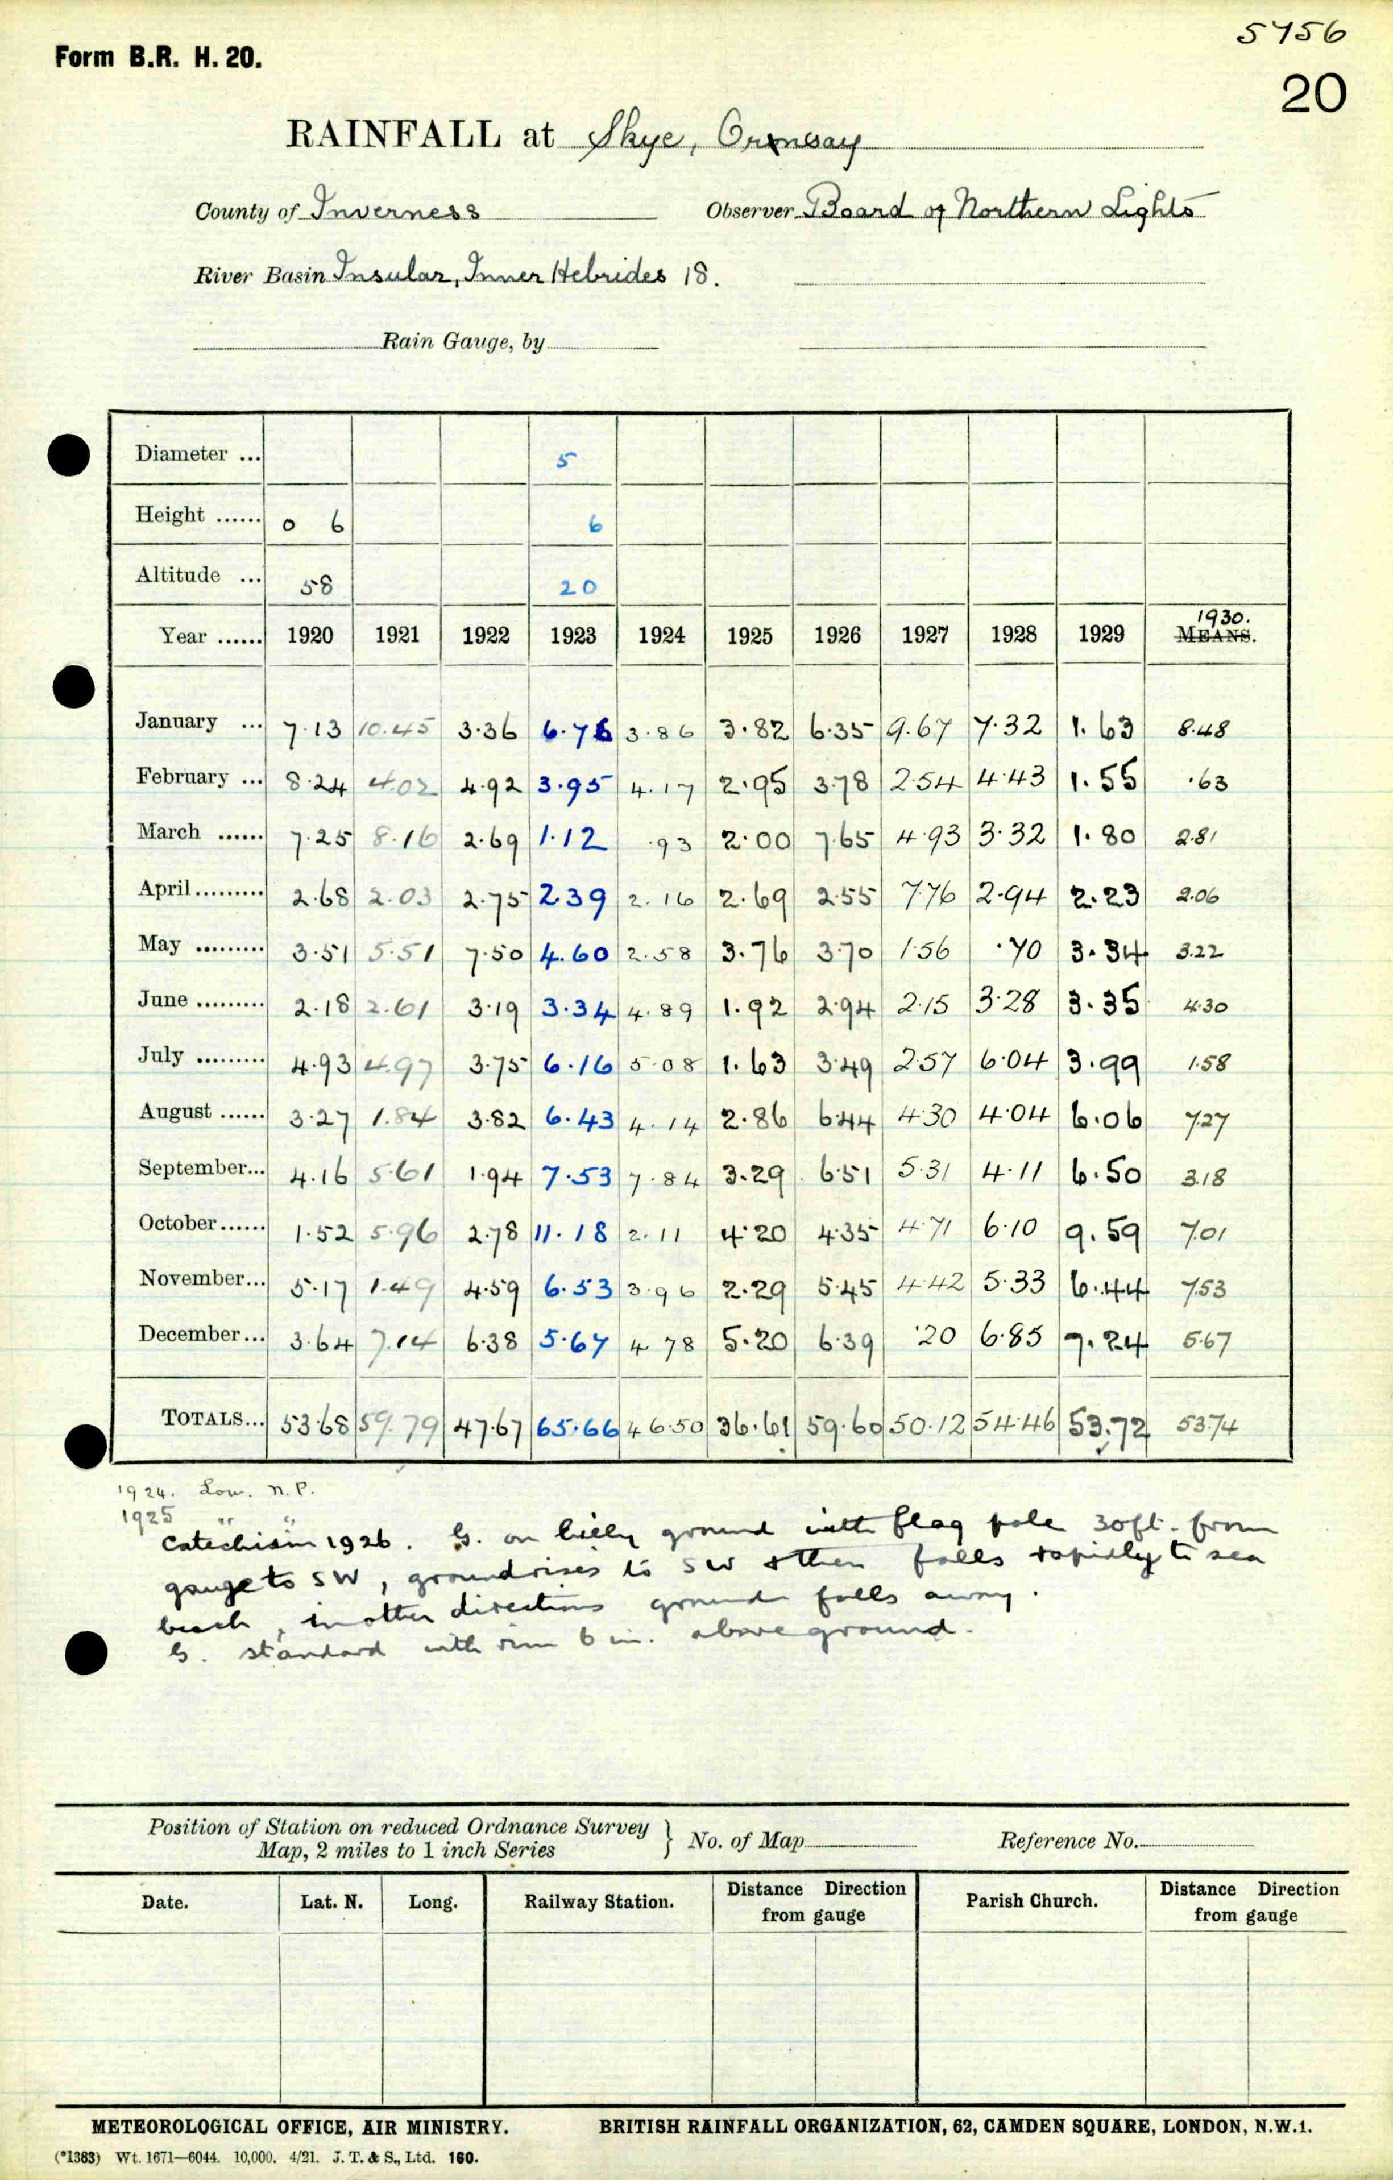 5756
Form B.R. H. 20.
20
RAINFALL at Skye, Ornsay
County of Inverness Observer Board of Northern Lights
River Basin Insular, Inner Hebrides 18.
Rain Gauge, by
Diameter ... 5
Height ...... 0 6 6
Altitude ... 58 20
Year ...... 1920 1921 1922 1923 1924 1925 1926 1927 1928 1929 1930. MEANS.
January ... 7.13 10.45 3.36 6.76 3.86 3.82 6.35 9.67 7.32 1.63 8.48
February ... 8.24 4.02 4.92 3.95 4.17 2.95 3.78 2.54 4.43 1.55 .63
March ...... 7.25 8.16 2.69 1.12 .93 2.00 7.65 4.93 3.32 1.80 2.81
April......... 2.68 2.03 2.75 2.39 2.16 2.69 2.55 7.76 2.94 2.23 2.06
May ......... 3.51 5.51 7.50 4.60 2.58 3.76 3.70 1.56 .70 3.34 3.22
June ......... 2.18 2.61 3.19 3.34 4.89 1.92 2.94 2.15 3.28 3.35 4.30
July ......... 4.93 4.97 3.75 6.16 5.08 1.63 3.49 2.57 6.04 3.99 1.58
August ...... 3.27 1.84 3.82 6.43 4.14 2.86 6.44 4.30 4.04 6.06 7.27
September... 4.16 5.61 1.94 7.53 7.84 3.29 6.51 5.31 4.11 6.50 3.18
October...... 1.52 5.96 2.78 11.18 2.11 4.20 4.35 4.71 6.10 9.59 7.01
November... 5.17 1.49 4.59 6.53 3.96 2.29 5.45 4.42 5.33 6.44 7.53
December... 3.64 7.14 6.38 5.67 4.78 5.20 6.39 .20 6.85 7.24 5.67
TOTALS... 53.68 59.79 47.67 65.66 46.50 36.61 59.60 50.12 54.46 53.72 53.74
1924. Low. N.P.
1925 " "
Catechism 1926. G. on hilly ground with flag pole 30ft. from
gauge to SW, ground rises to SW & then falls rapidly to sea
beach, in other directions ground falls away.
G. standard with rim 6 in. above ground.
Position of Station on reduced Ordnance Survey
Map, 2 miles to 1 inch Series } No. of Map Reference No.
Date. Lat. N. Long. Railway Station. Distance from gauge Direction Parish Church. Distance from gauge Direction
METEOROLOGICAL OFFICE, AIR MINISTRY. BRITISH RAINFALL ORGANIZATION, 62, CAMDEN SQUARE, LONDON, N.W.1.
(*1383) Wt. 1671—6044. 10,000. 4/21. J. T. & S., Ltd. 160.